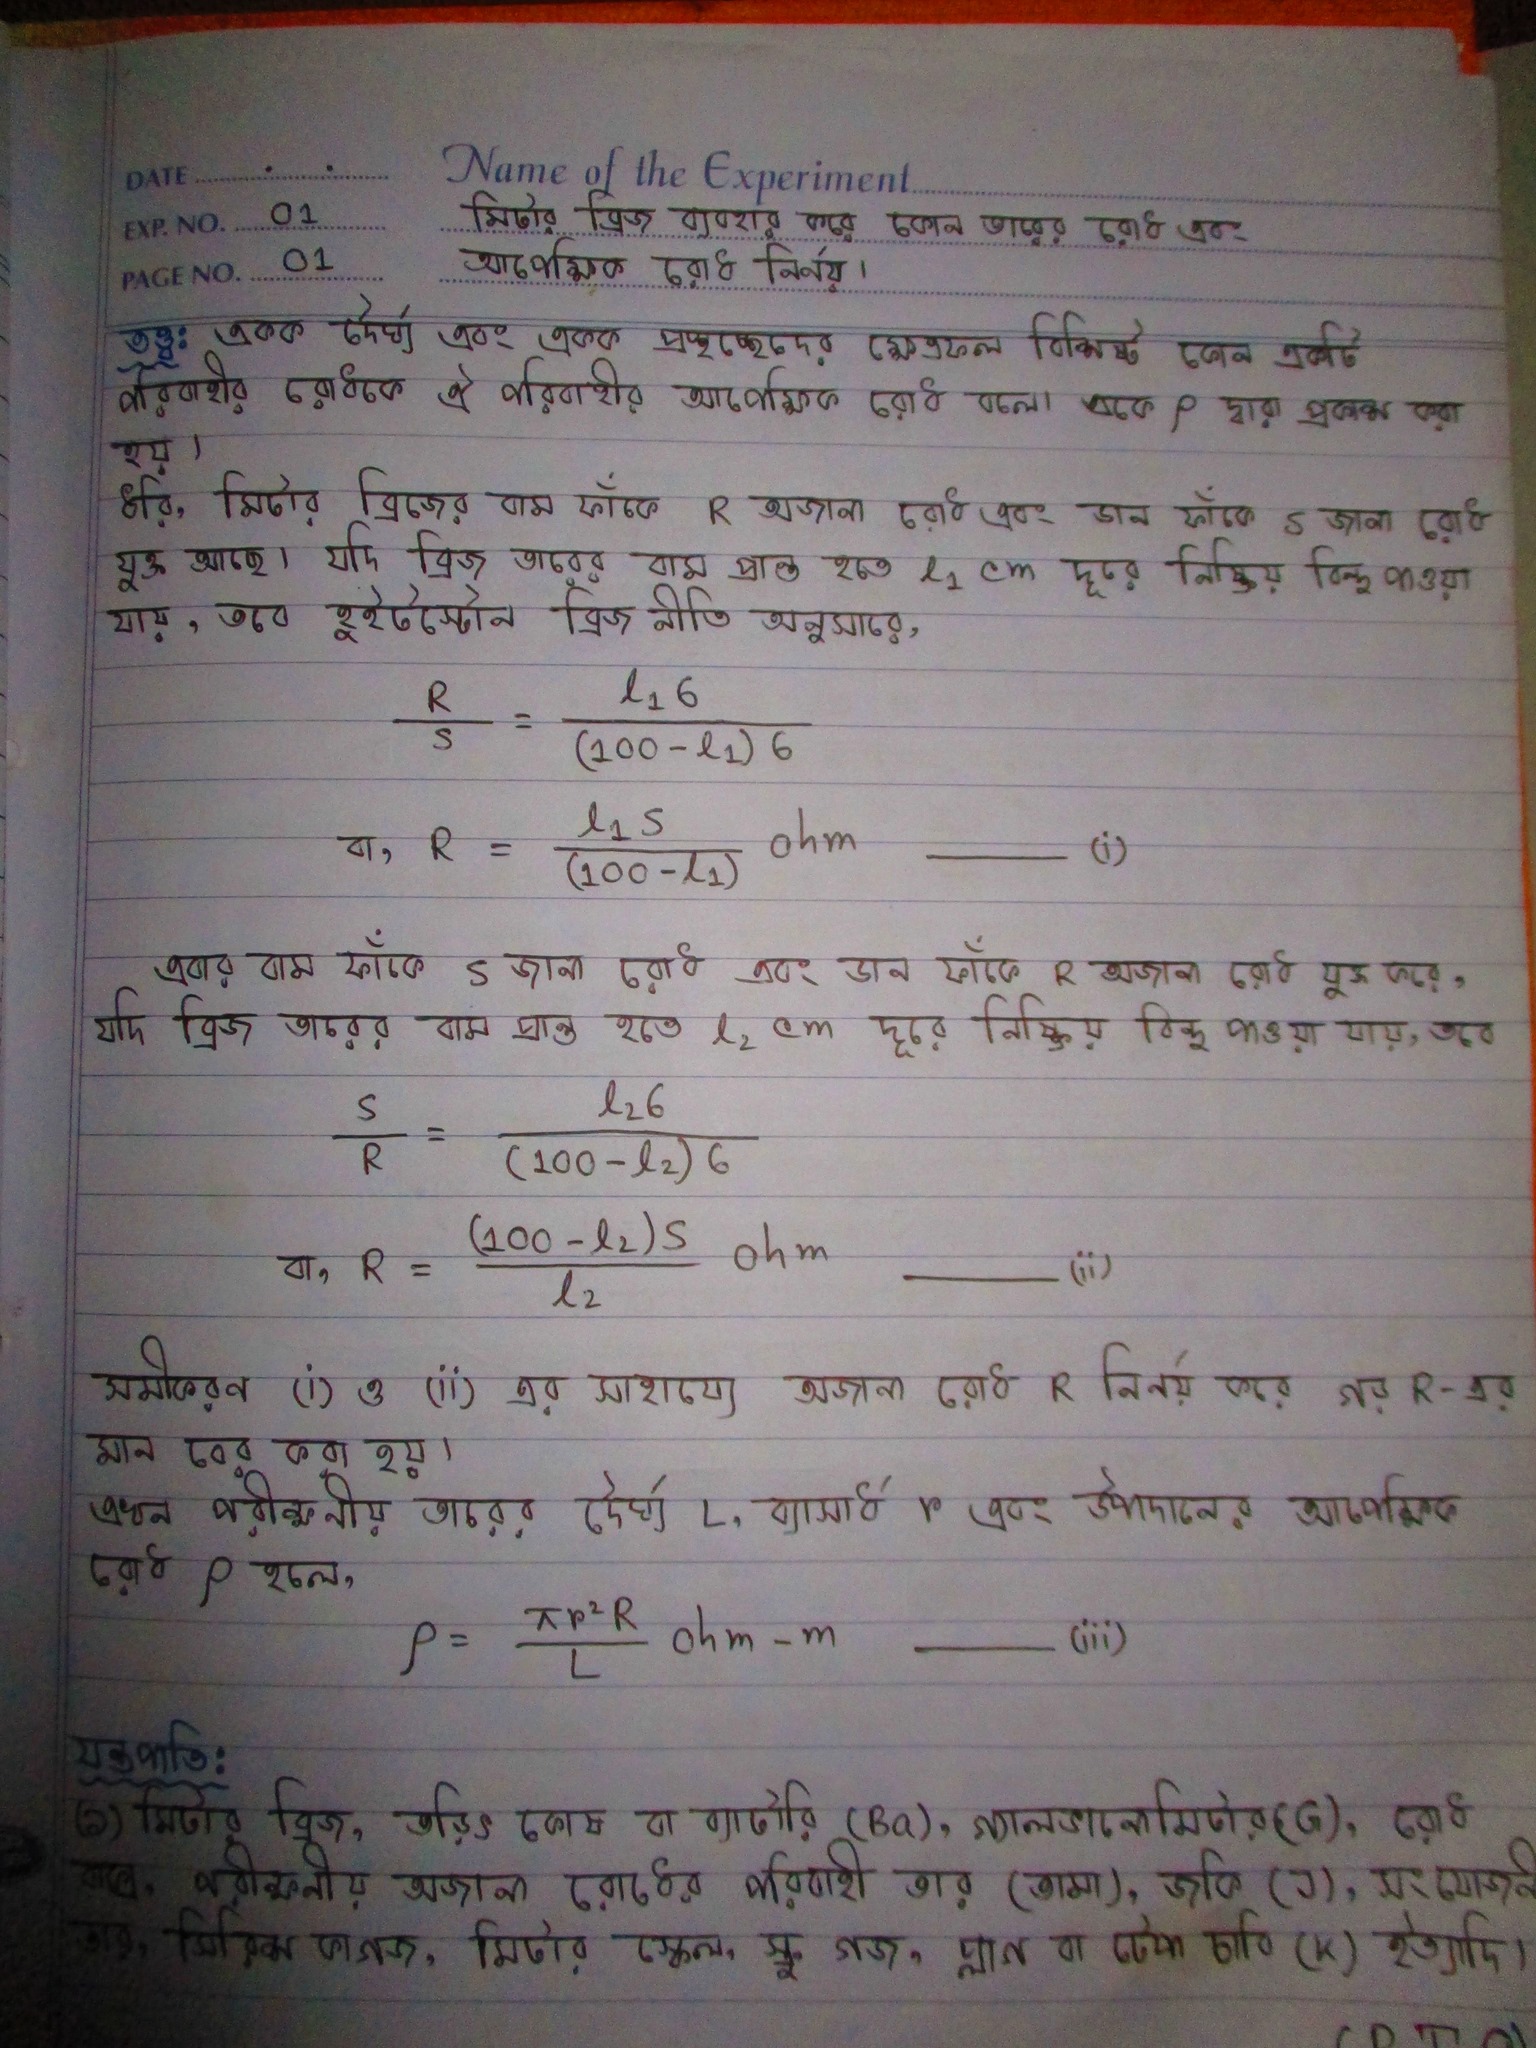 DATE Name of the Experiment
EXP. NO. 01 মিটার ব্রিজ ব্যবহার করে কোন তারের রোধ এবং
PAGE NO. 01 আপেক্ষিক রোধ নির্নয়।
তত্ত্ব: একক দৈর্ঘ্য এবং একক প্রস্থচ্ছেদের ক্ষেত্রফল বিশিষ্ট কোন একটি
পরিবাহীর রোধকে ঐ পরিবাহীর আপেক্ষিক রোধ বলে। একে ρ দ্বারা প্রকাশ করা
হয়।
ধরি, মিটার ব্রিজের বাম ফাঁকে R অজানা রোধ এবং ডান ফাঁকে S জানা রোধ
যুক্ত আছে। যদি ব্রিজ তারের বাম প্রান্ত হতে l₁ cm দূরে নিষ্ক্রিয় বিন্দু পাওয়া
যায়, তবে হুইটস্টোন ব্রিজ নীতি অনুসারে,
R/S = l₁6/(100-l₁)6
বা, R = l₁S/(100-l₁) ohm ——— (i)
এবার বাম ফাঁকে S জানা রোধ এবং ডান ফাঁকে R অজানা রোধ যুক্ত করে,
যদি ব্রিজ তারের বাম প্রান্ত হতে l₂ cm দূরে নিষ্ক্রিয় বিন্দু পাওয়া যায়, তবে
S/R = l₂6/(100-l₂)6
বা, R = (100-l₂)S/l₂ ohm ——— (ii)
সমীকরন (i) ও (ii) এর সাহায্যে অজানা রোধ R নির্নয় করে গর R-এর
মান বের করা হয়।
এখন পরীক্ষনীয় তারের দৈর্ঘ্য L, ব্যাসার্ধ r এবং উপাদানের আপেক্ষিক
রোধ ρ হলে,
ρ = πr²R/L ohm-m ——— (iii)
যন্ত্রপাতি:
(১) মিটার ব্রিজ, তড়িৎ কোষ বা ব্যাটারি (Ba), গ্যালভানোমিটার(G), রোধ
বাক্স, পরীক্ষনীয় অজানা রোধের পরিবাহী তার (তামা), জকি (J), সংযোজনী
তার, সিরিশ কাগজ, মিটার স্কেল, স্ক্রু গজ, প্লাগ বা টেপা চাবি (K) ইত্যাদি।